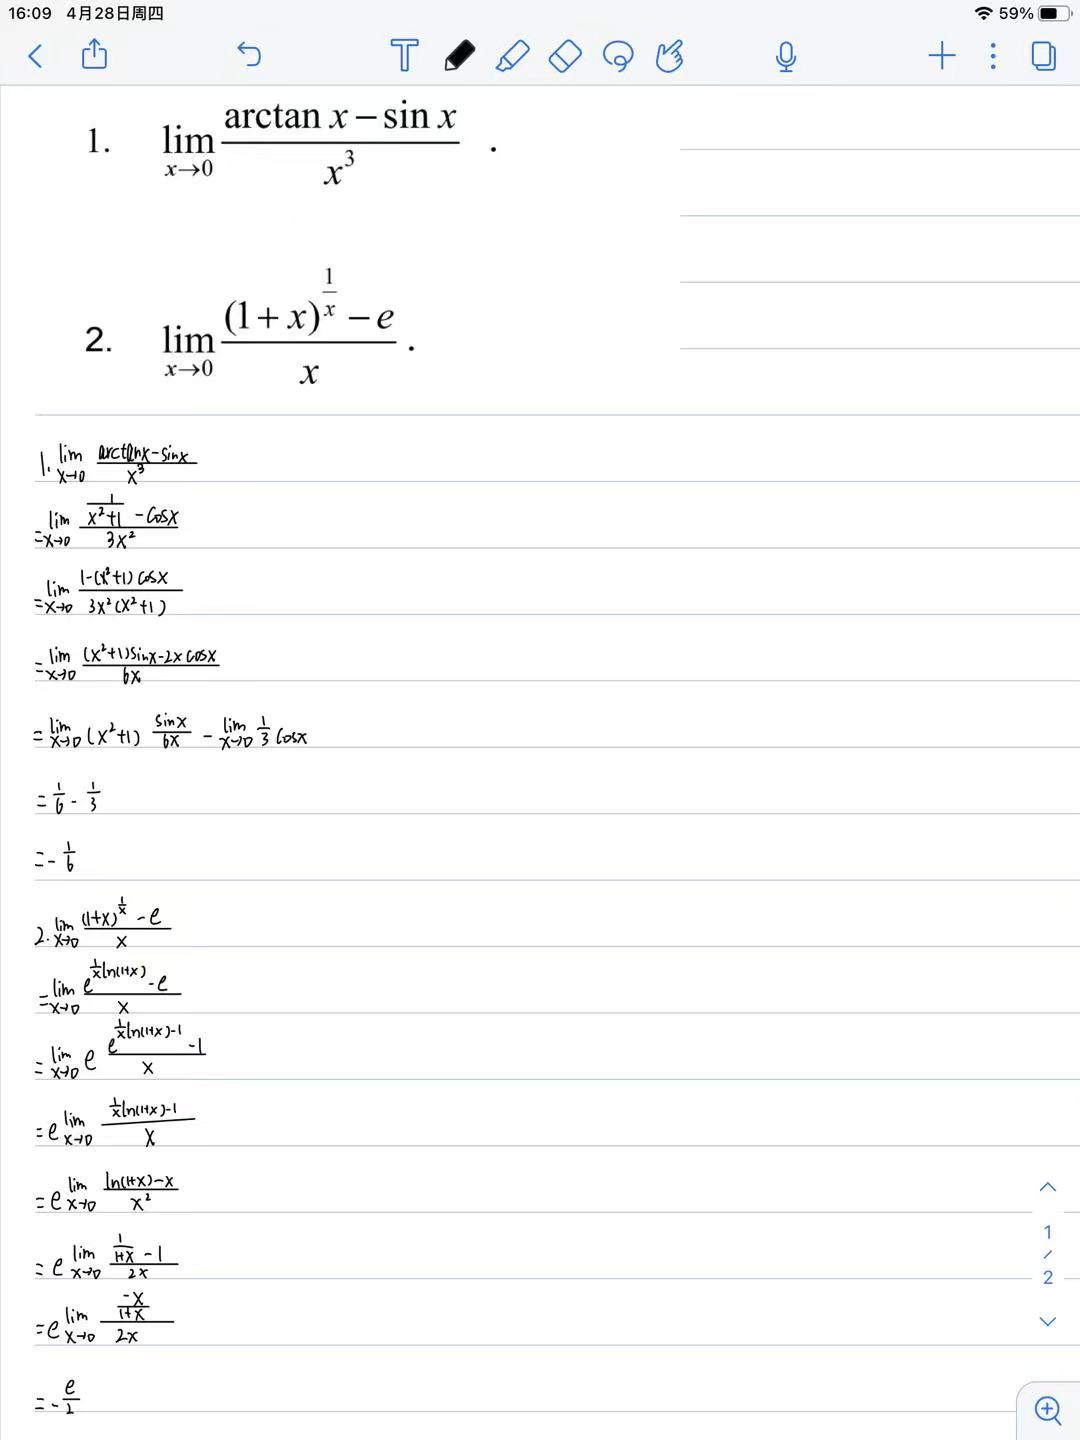 16:09 4月28日周四 59%
T
1. lim x→0 (arctan x − sin x)/x³ .
2. lim x→0 ((1+x)^(1/x) − e)/x .
1. lim x→0 (arctanx−sinx)/x³
= lim x→0 (1/(x²+1) − cosx)/3x²
= lim x→0 (1−(x²+1)cosx)/(3x²(x²+1))
= lim x→0 ((x²+1)sinx−2xcosx)/6x
= lim x→0 (x²+1) sinx/6x − lim x→0 1/3 cosx
= 1/6 − 1/3
= − 1/6
2. lim x→0 ((1+x)^(1/x) − e)/x
= lim x→0 (e^(1/x ln(1+x)) − e)/x
= lim x→0 e (e^(1/x ln(1+x)−1) − 1)/x
= e lim x→0 (1/x ln(1+x)−1)/x
= e lim x→0 (ln(1+x)−x)/x²
= e lim x→0 (1/(1+x) − 1)/2x
= e lim x→0 (−x/(1+x))/2x
= − e/2
1
/
2